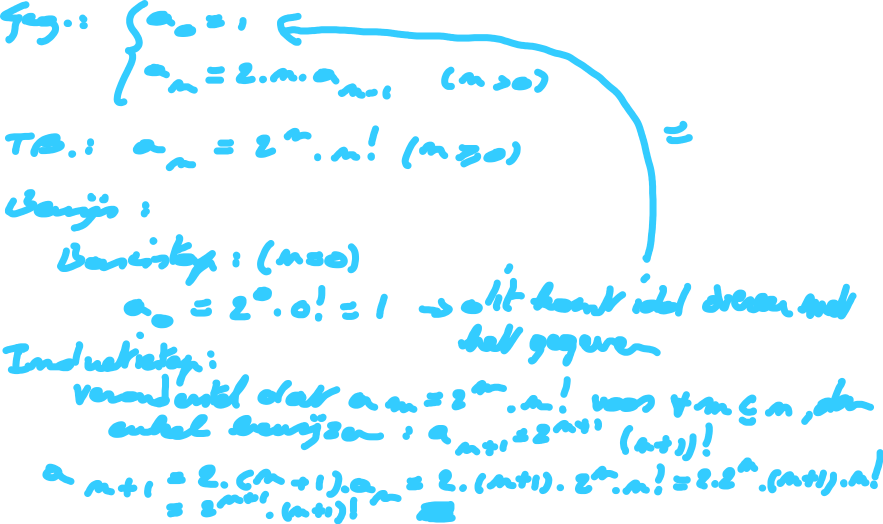 Geg.: { a_0 = 1
a_n = 2.n.a_{n-1} (n>0)
=
TB.: a_n = 2^n . n! (n≥0)
Bewijs :
Basisstap : (n=0)
a_0 = 2^0 . 0! = 1 → dit komt idd overeen met
het gegeven
Inductiestap :
veronderstel dat a_m = 2^m . m! voor ∀ m ≤ n, dan
enkel bewijzen : a_{n+1} = 2^{n+1} (n+1)!
a_{n+1} = 2.(n+1).a_n = 2.(n+1).2^n.n! = 2.2^n.(n+1).n!
= 2^{n+1}.(n+1)! ■